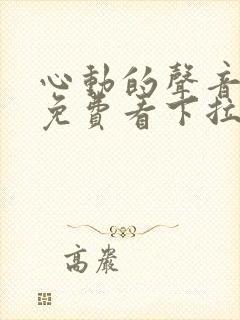 心動的聲音
免費看下拉
高嚴